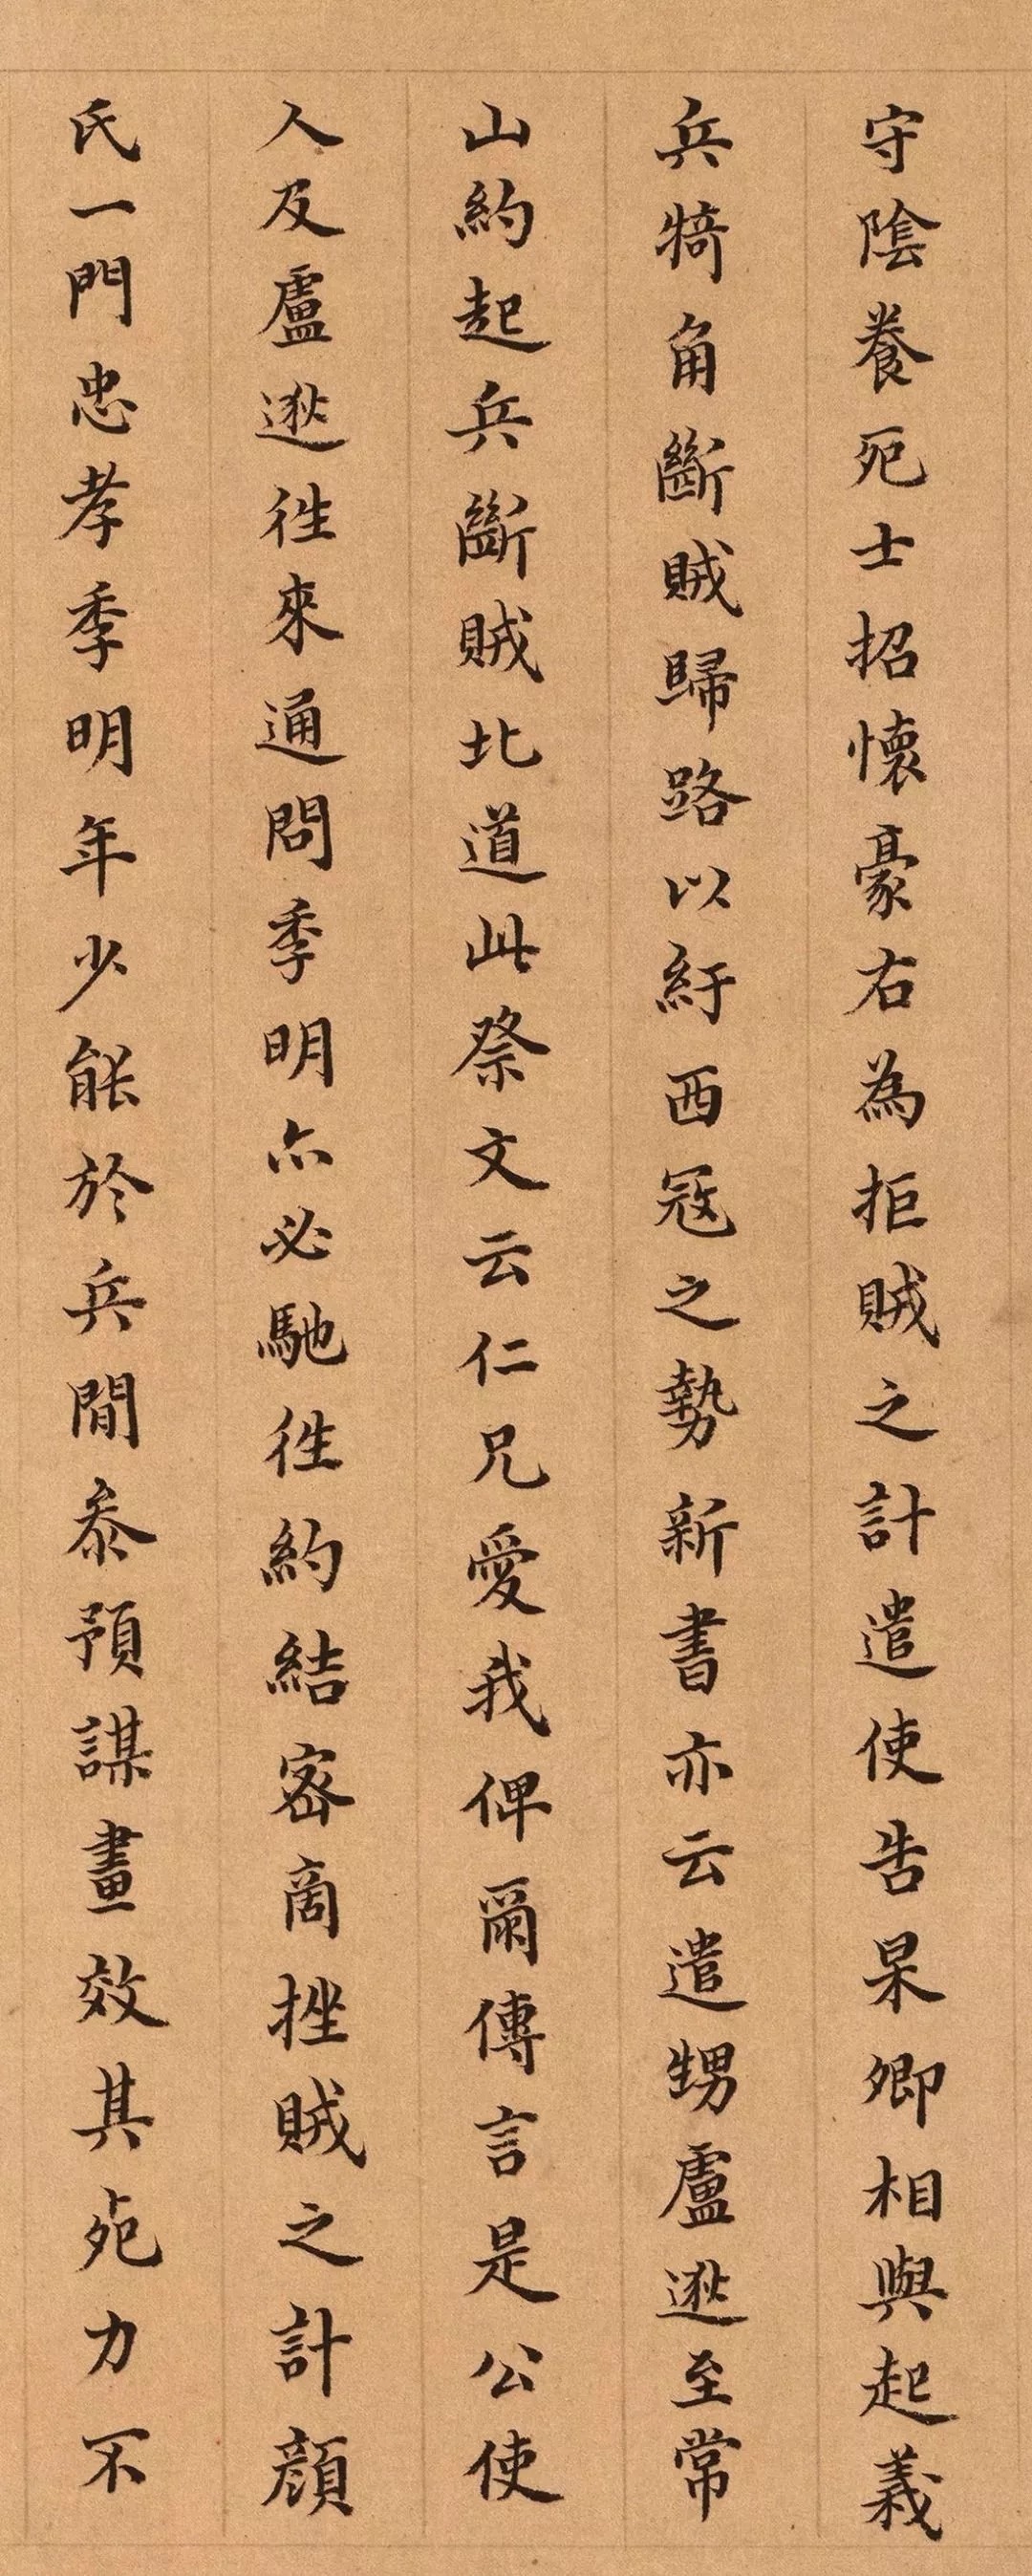 守陰養死士招懷豪右為拒賊之計遣使告杲卿相與起義
兵犄角斷賊歸路以紓西冦之勢新書亦云遣甥盧逖至常
山約起兵斷賊北道此祭文云仁兄愛我俾爾傳言是公使
人及盧逖徃來通問季明亦必馳徃約結密商挫賊之計顔
氏一門忠孝季明年少能於兵間參預謀畫效其死力不